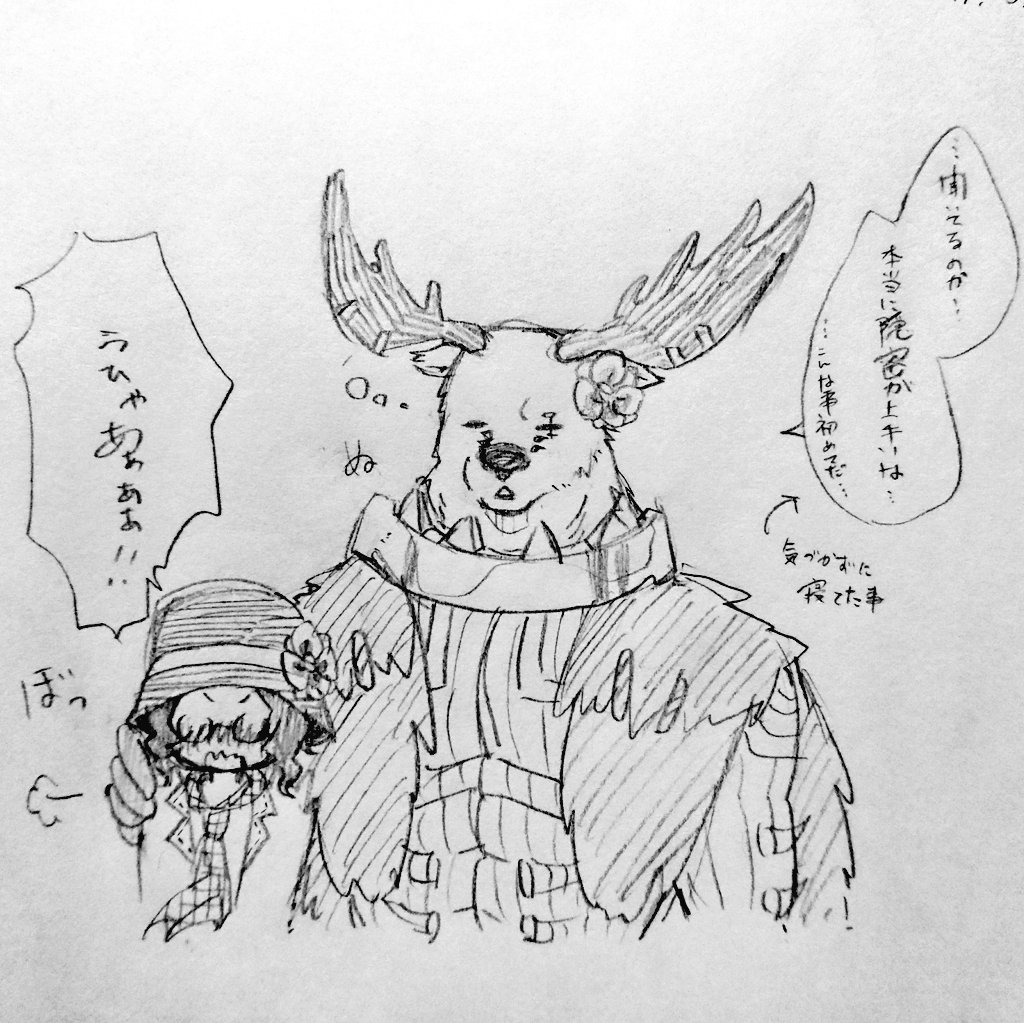 …聞いてるのか…
本当に隠密が上手いな…
…こんな事初めてだ…
気づかずに
寝てた事
ぬ
うひゃあぁぁあ!!
ぼっ